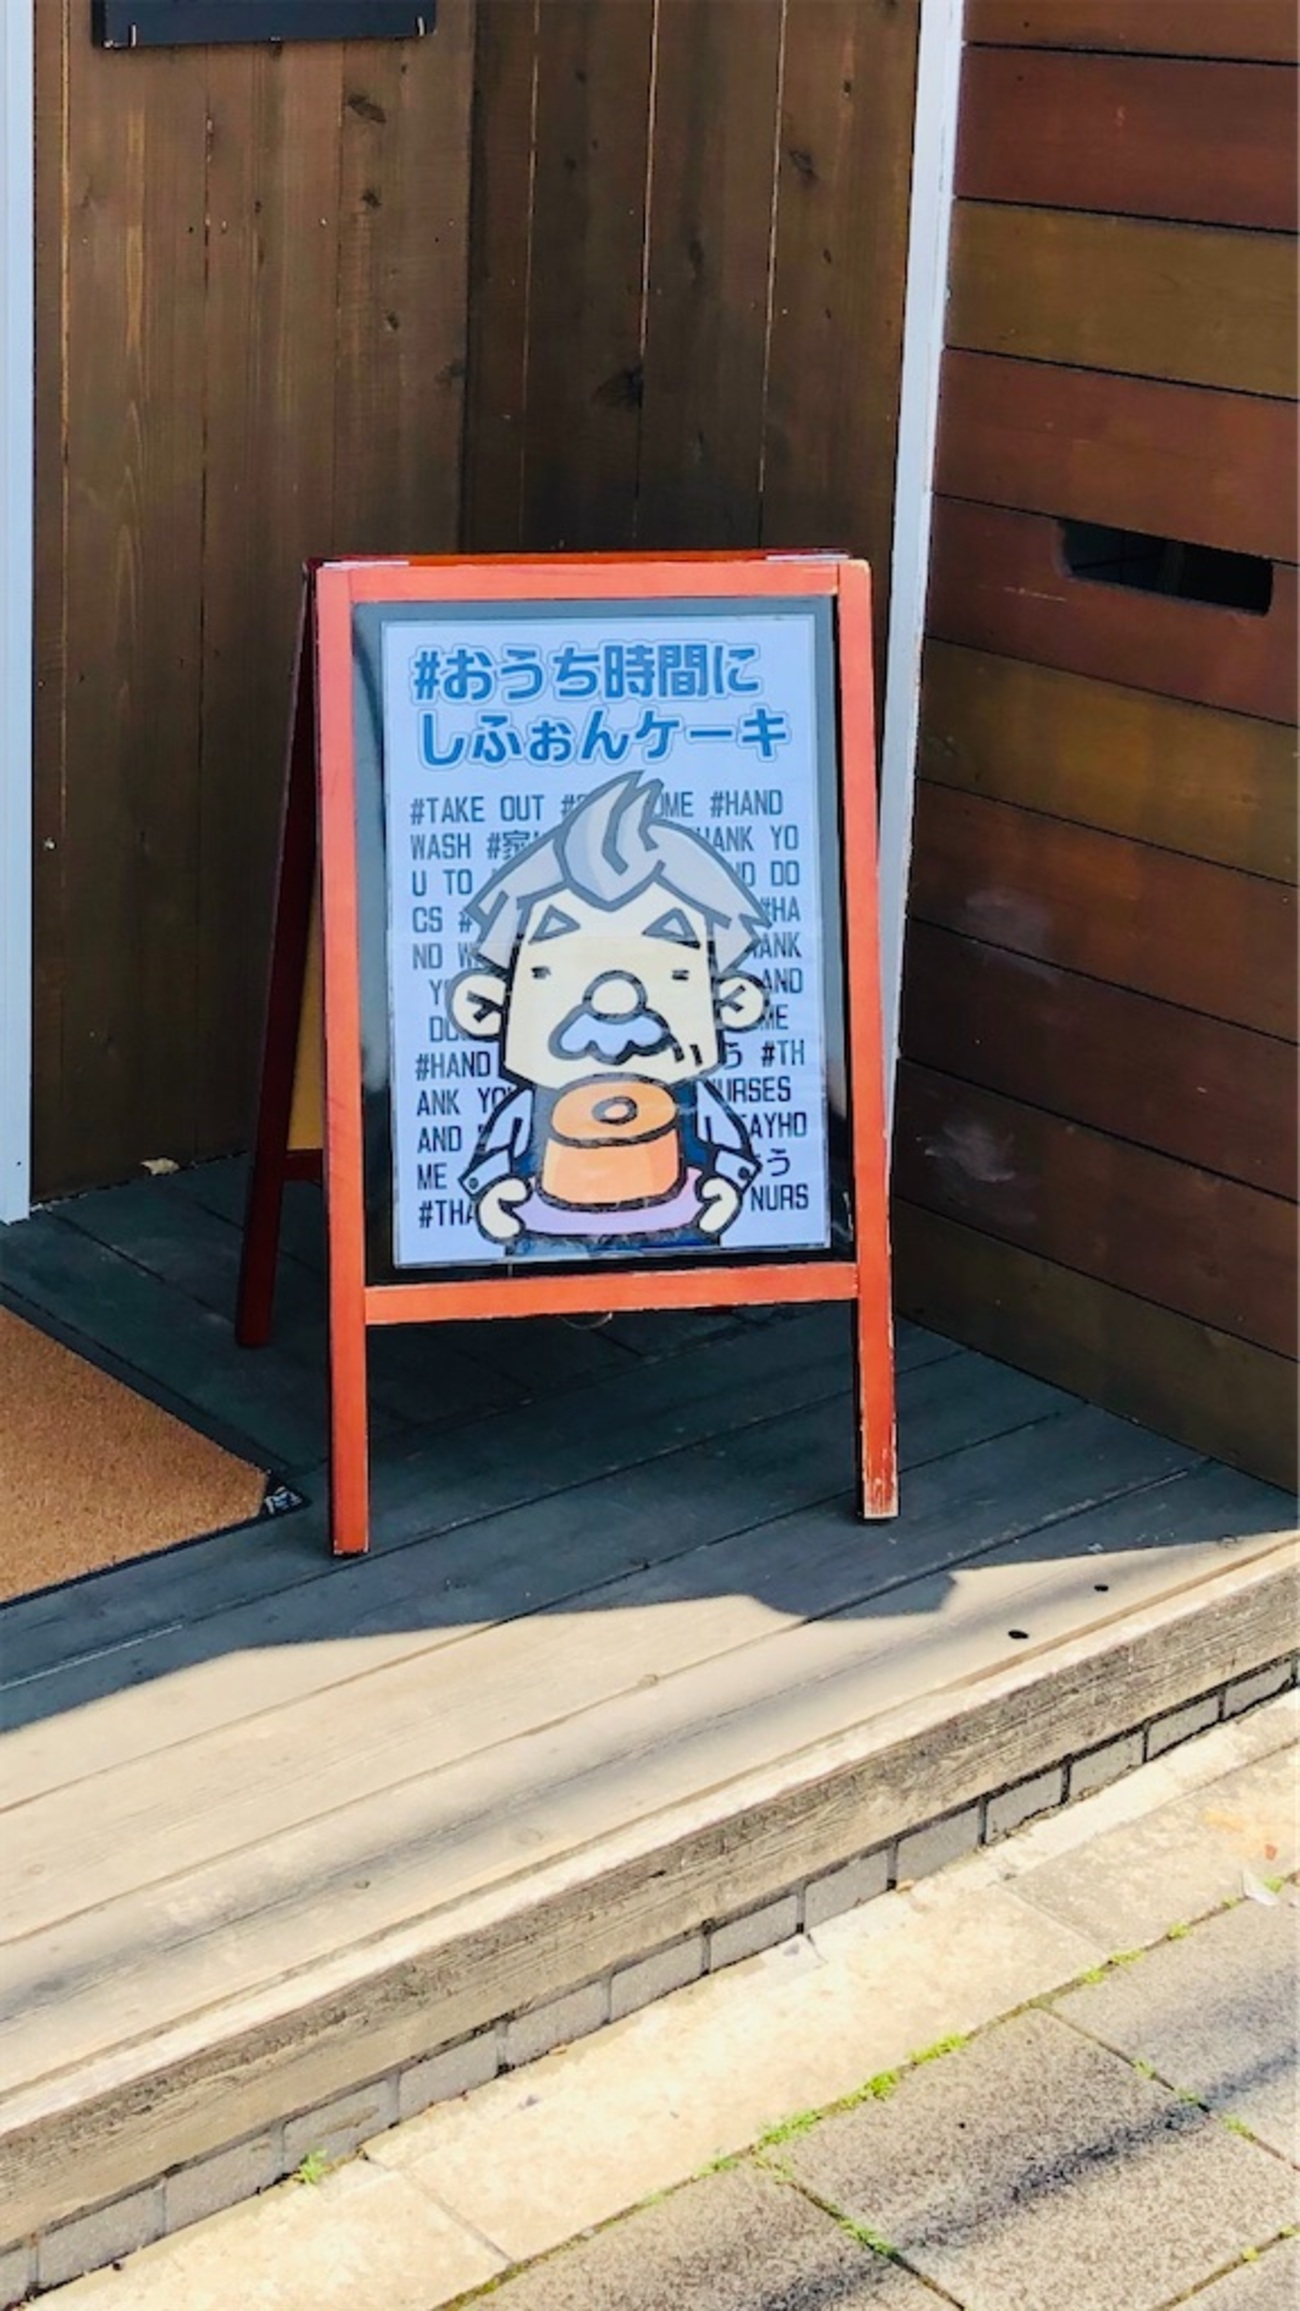 #おうち時間に
しふぉんケーキ
#TAKE OUT # OME #HAND
WASH #家 HANK YO
U TO ND DO
CS # #HA
ND W HANK
Y AND
DO ME
#HAND う #TH
ANK YO URSES
AND TAYHO
ME う
#THA NURS